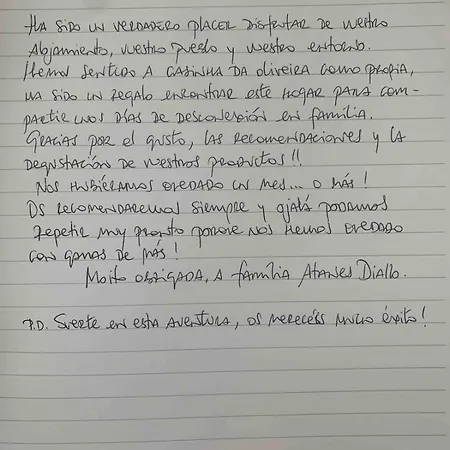 Ha sido un verdadero placer disfrutar de vuestro
alojamiento, vuestro pueblo y vuestro entorno.
Hemos sentido A CASINHA DA oliveira como propia,
ha sido un regalo encontrar este hogar para com-
partir unos días de desconexión en familia.
Gracias por el gusto, las recomendaciones y la
degustación de vuestros productos!!
Nos hubiéramos quedado un mes... o más!
Os recomendaremos siempre y ojalá podamos
repetir muy pronto porque nos hemos quedado
con ganas de más!
Moito obrigada, a família Atanes Diallo.
P.D. Suerte en esta aventura, os merecéis mucho éxito!